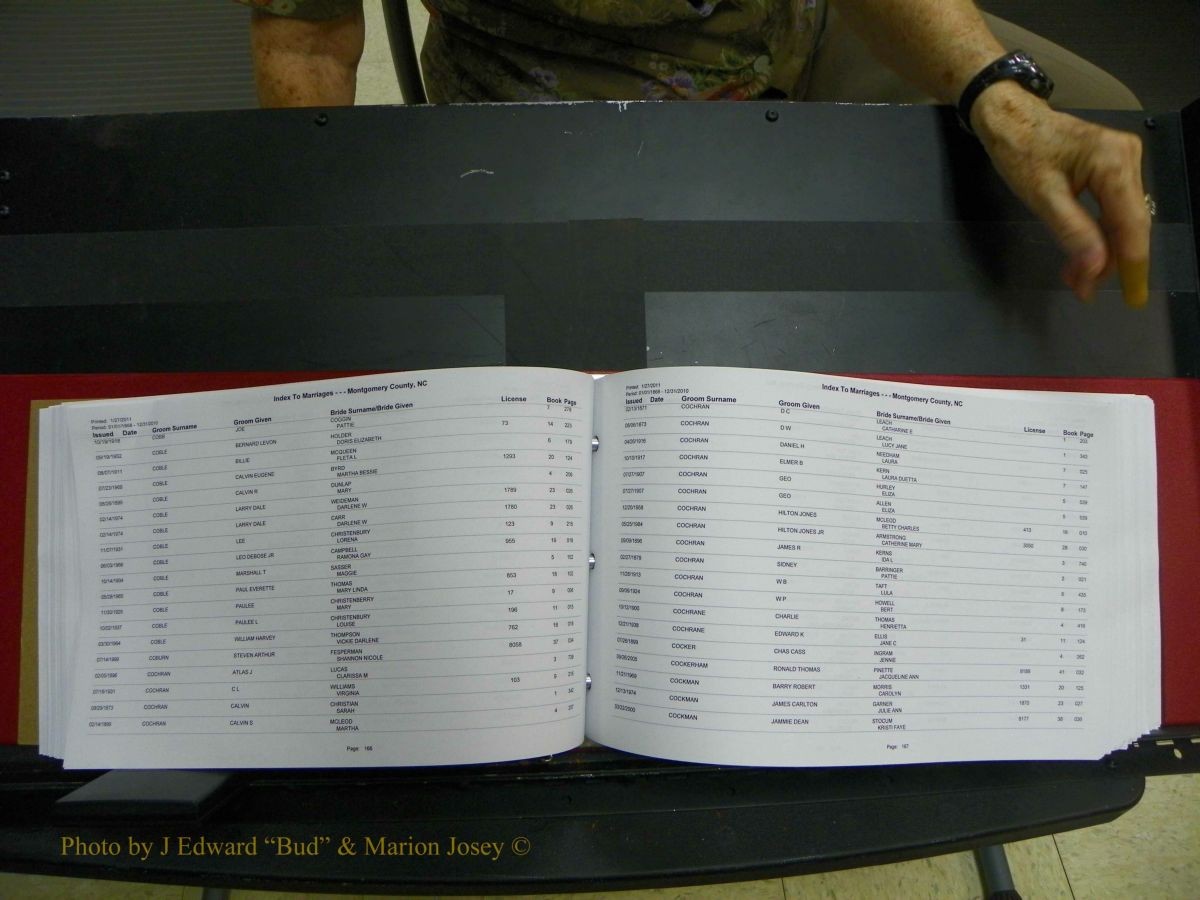 Index To Marriages - - - Montgomery County, NC
Printed: 1/27/2011
Period: 01/01/1868 - 12/31/2010
Issued Date Groom Surname Groom Given Bride Surname/Bride Given License Book Page
COBLE JOE COGGIN 7 278
PATTIE
COBLE BERNARD LEVON HOLDER 73 14 223
DORIS ELIZABETH
COBLE BILLIE MCQUEEN 6 179
FLETA L
COBLE CALVIN EUGENE BYRD 1293 20 124
MARTHA BESSIE
COBLE CALVIN R DUNLAP 4 206
MARY
COBLE LARRY DALE WEIDEMAN 1789 23 026
DARLENE W
02/14/1974 COBLE LARRY DALE CARR 1780 23 026
DARLENE W
11/07/1931 COBLE LEE CHRISTENBURY 123 9 215
LORENA
COBLE LEO DEBOSE JR CAMPBELL 955 19 019
RAMONA GAY
10/14/1904 COBLE MARSHALL T SASSER 5 102
MAGGIE
COBLE PAUL EVERETTE THOMAS 653 18 102
MARY LINDA
COBLE PAULEE CHRISTENBERRY 17 9 006
MARY
10/02/1937 COBLE PAULEE L CHRISTENBURY 196 11 013
LOUISE
03/30/1964 COBLE WILLIAM HARVEY THOMPSON 762 18 019
VICKIE DARLENE
07/14/1999 COBURN STEVEN ARTHUR FESPERMAN 8058 37 034
SHANNON NICOLE
COCHRAN ATLAS J LUCAS 3 739
CLARISSA M
07/16/1931 COCHRAN C L WILLIAMS 103 9 215
VIRGINIA
COCHRAN CALVIN CHRISTIAN 1 342
SARAH
02/14/1899 COCHRAN CALVIN S MCLEOD 4 207
MARTHA
Page: 166
Index To Marriages - - - Montgomery County, NC
Printed: 1/27/2011
Period: 01/01/1868 - 12/31/2010
Issued Date Groom Surname Groom Given Bride Surname/Bride Given License Book Page
02/13/1871 COCHRAN D C LEACH 1 202
CATHARINE E
COCHRAN D W LEACH 1 343
LUCY JANE
COCHRAN DANIEL H NEEDHAM 7 025
LAURA
10/13/1917 COCHRAN ELMER B KERN 7 147
LAURA DUETTA
07/27/1907 COCHRAN GEO HURLEY 5 539
ELIZA
07/27/1907 COCHRAN GEO ALLEN 5 539
ELIZA
COCHRAN HILTON JONES MCLEOD 413 16 010
BETTY CHARLES
COCHRAN HILTON JONES JR ARMSTRONG 28 030
CATHERINE MARY
COCHRAN JAMES R KERNS 3 740
IDA L
COCHRAN SIDNEY BARRINGER 2 021
PATTIE
COCHRAN W B TAFT 6 435
LULA
COCHRAN W P HOWELL 8 173
BERT
COCHRANE CHARLIE THOMAS 4 416
HENRIETTA
12/21/1938 COCHRANE EDWARD K ELLIS 31 11 124
JANE C
07/26/1899 COCKER CHAS CASS INGRAM 4 262
JENNIE
COCKERHAM RONALD THOMAS PINETTE 41 032
JACQUELINE ANN
11/21/1969 COCKMAN BARRY ROBERT MORRIS 1331 20 125
CAROLYN
12/13/1974 COCKMAN JAMES CARLTON GARNER 1870 23 027
JULIE ANN
COCKMAN JAMMIE DEAN STOCUM 8177 38 030
KRISTI FAYE
Page: 167
Photo by J Edward “Bud” & Marion Josey ©